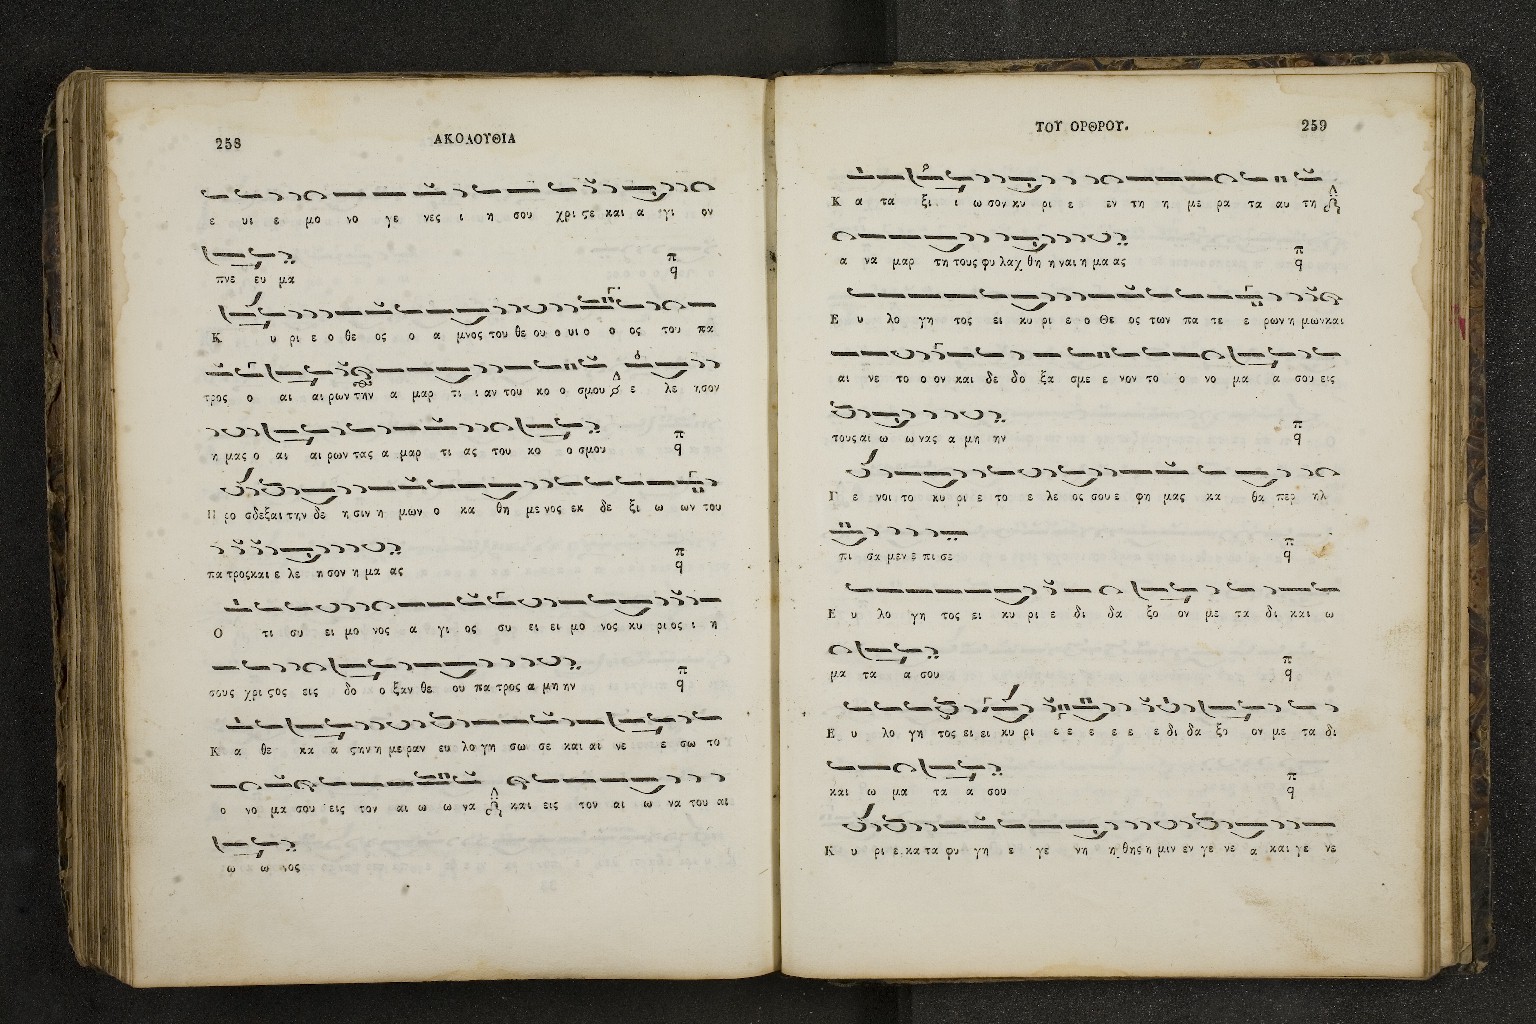 258 ΑΚΟΛΟΥΘΙΑ
ε υι ε μο νο γε νες ι η σου χρι ϛε και α γι ον
πνε ευ μα π q
Κ υ ρι ε ο θε ος ο α μνος του θε ου ο υι ο ο ος του πα
τρος ο αι αι ρων την α μαρ τι ι αν του κο ο σμου ε λε ησον
η μας ο αι αι ρων τας α μαρ τι ας του κο ο σμου π q
Π ρο σδεξαι την δε η σιν η μων ο κα θη με νος εκ δε ξι ω ων του
πα τρος και ε λε η σον η μα ας π q
Ο τι συ ει μο νος α γι ος συ ει ει μο νος κυ ρι ος ι η
σους χρι ϛος εις δο ο ξαν θε ου πα τρος α μη ην π q
Κ α θε κα α ϛην η με ραν ευ λο γη σω σε και αι νε ε σω το
ο νο μα σου εις τον αι ω ω να και εις τον αι ω να του αι
ω ω νος
ΤΟΥ ΟΡΘΡΟΥ. 259
Κ α τα ξι ι ω σον κυ ρι ε εν τη η με ρα τα αυ τη
α να μαρ τη τους φυ λαχ θη η ναι η μα ας π q
Ε υ λο γη τος ει κυ ρι ε ο Θε ος των πα τε ε ρων η μων και
αι νε το ο ον και δε δο ξα σμε ε νον το ο νο μα α σου εις
τους αι ω ω νας α μη ην π q
Γ ε νοι το κυ ρι ε το ε λε ος σου ε φη μας κα θα περ ηλ
πι σα μεν ε πι σε π q
Ε υ λο γη τος ει κυ ρι ε δι δα ξο ον με τα δι και ω
μα τα α σου π q
Ε υ λο γη τος ει ει κυ ρι ε ε ε ε ε ε δι δα ξο ον με τα δι
και ω μα τα α σου π q
Κ υ ρι ε κα τα φυ γη ε γε νη η θης η μιν εν γε νε α και γε νε